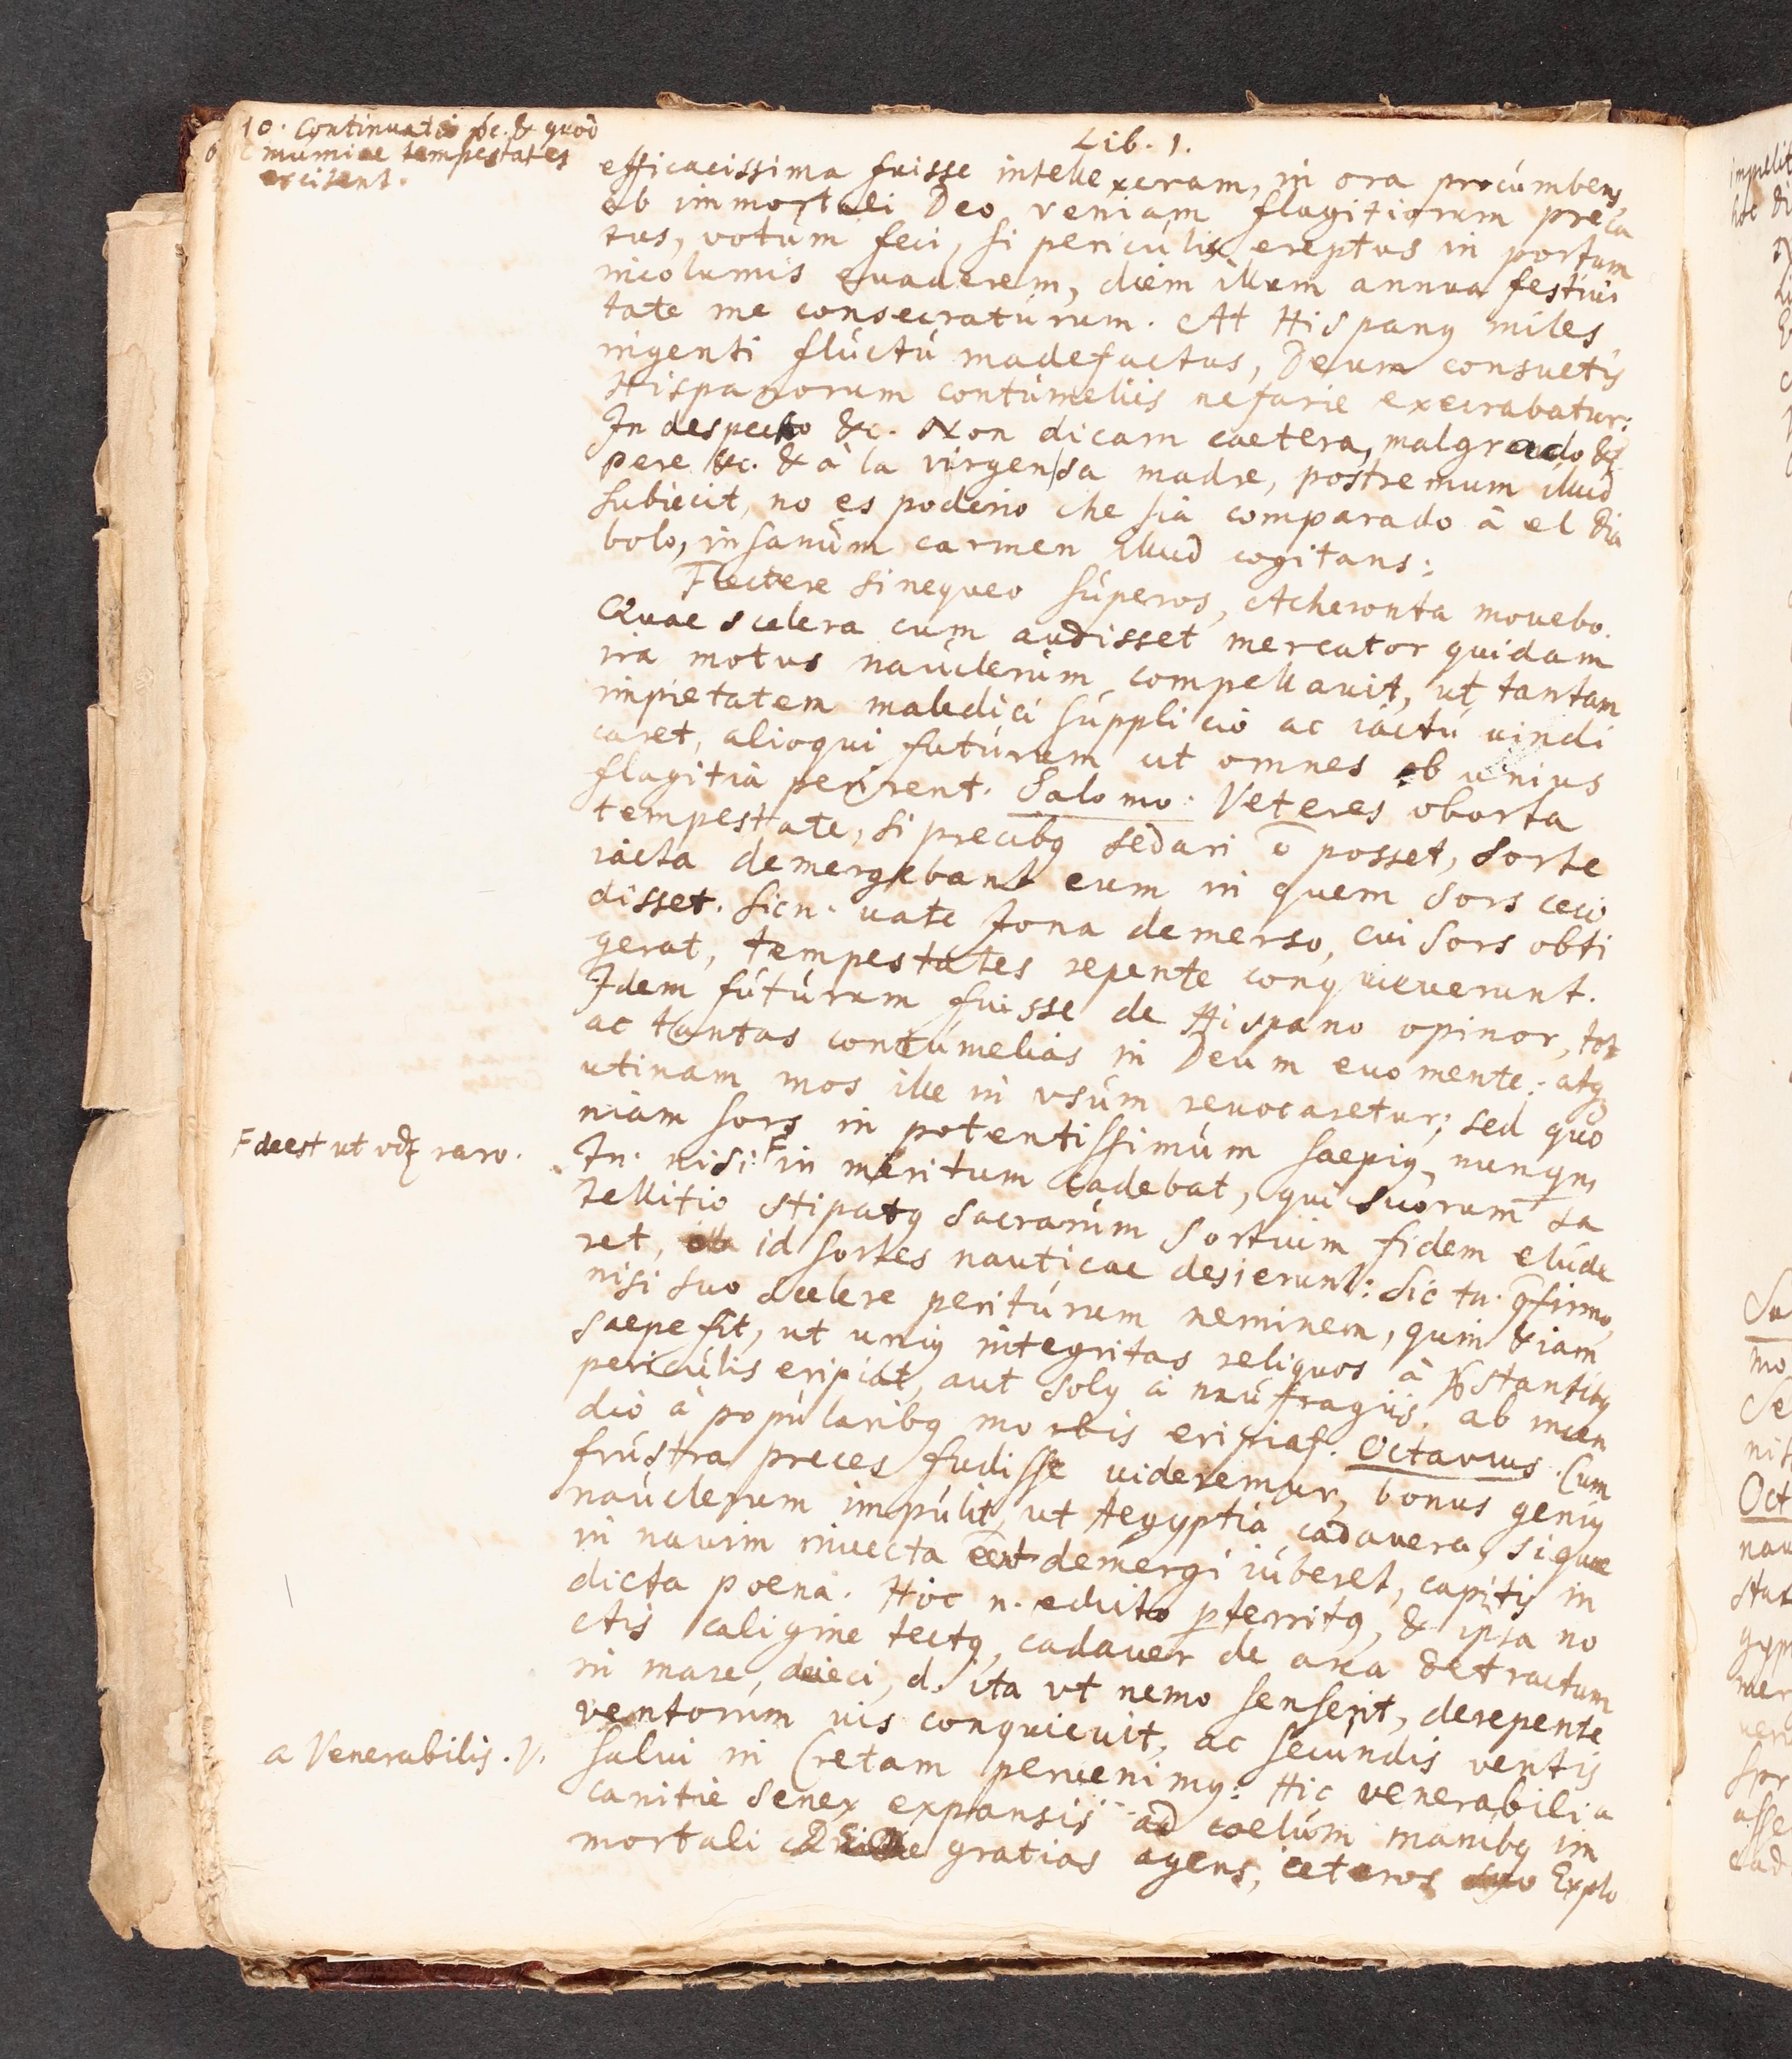 10. Continuatio &c. & quod
mumiae tempestates
excitent.
Lib. 1.
efficacissima fuisse intellexeram, in ora procumbens,
ab immortali Deo veniam flagitiorum preca
tus, votum feci, si periculis ereptus in portum
incolumis evaderem, diem illum annua festiui
tate me consecraturum. At Hispanq miles
ingenti fluctu madefactus, Deum consuetis
Hispanorum contumeliis nefarie execrabatur:
In despecto &c. Non dicam caetera, malgrado &
pere &c. & à la virgen sa madre, postremum illud
subiecit, no es poderio che sia comparado à el dia
bolo, insanum carmen illud cogitans:
Flectere si nequeo súperos, Acheronta mouebo.
Quae scelera cum audisset mercator quidam
ira motus nauclerum compellauit, ut tantam
impietatem maledici supplicio ac iactu uindi
caret, alioqui futurum ut omnes ob unius
flagitia perirent. Salomo: Veteres oborta
tempestate, si precibq sedari ō posset, sorte
iacta demergebant eum in quem sors ceci
disset. Sic n. uate Jona demerso, cui sors obti
gerat, tempestates repente conquieuerunt.
Idem fúturum fuisse de Hispano opinor, tot
ac tantas contumelias in Deum euomente: atq
utinam mos ille in vsúm reuocaretur; sed quo
niam sors in potentissimúm saepiq, nunqm
F deest ut vdz raro.
In. nisi F in meritum cadebat, qui suorum sa
tellitio stipatq sacrarúm sortium fidem elude
ret, id sortes nauticae desierunt: Sic tn. qfirmo,
nisi suo scelere peritúrum neminem, quin &iam
saepe fit, ut uniq integritas reliquos à pstantibq
periculis eripiat, aut solq à naufragiis. ab incen
dio à popularibq morbis eripiat. Octavius. Cum
frústra preces fudisse uideremur, bonus geniq
nauclerum impúlit, ut Aegyptia cadauera, si quae
in nauim inuecta eent demergi iúberet, capitis in
dicta poena. Hoc n. edicto pterritq, & ipsa no
ctis caligine tectq, cadauer de arca detractum
in mare, deieci, d. ita vt nemo senserit, derepente
ventorúm uis conquieuit, ac secúndis ventis
a Venerabilis. V.
salui in Cretam peruenimq: Hic venerabili a
canitie senex expansis ad coelúm manibq im
mortali gratias agens, ceteros Explo